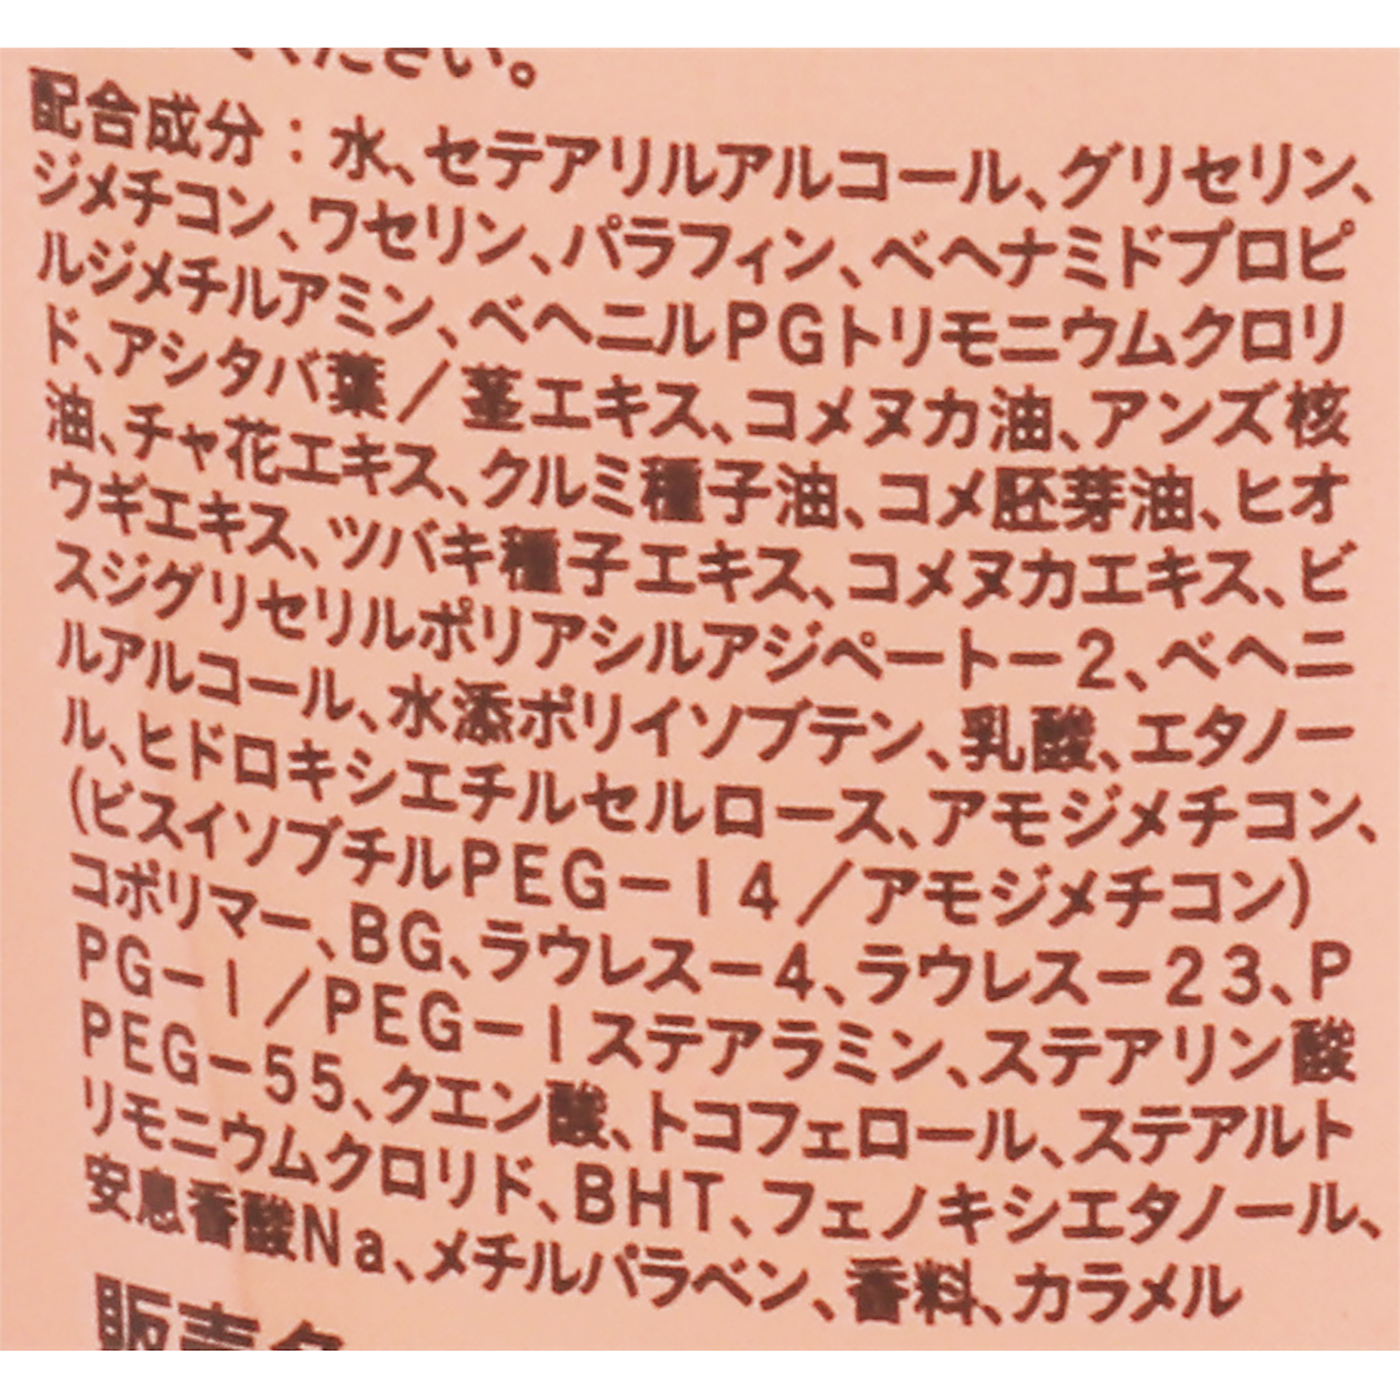 ください。
配合成分：水、セテアリルアルコール、グリセリン、
ジメチコン、ワセリン、パラフィン、ベヘナミドプロピ
ルジメチルアミン、ベヘニルPGトリモニウムクロリ
ド、アシタバ葉／茎エキス、コメヌカ油、アンズ核
油、チャ花エキス、クルミ種子油、コメ胚芽油、ヒオ
ウギエキス、ツバキ種子エキス、コメヌカエキス、ビ
スジグリセリルポリアシルアジペート－2、ベヘニ
ルアルコール、水添ポリイソブテン、乳酸、エタノー
ル、ヒドロキシエチルセルロース、アモジメチコン、
(ビスイソブチルPEG－14／アモジメチコン)
コポリマー、BG、ラウレス－4、ラウレス－23、P
PG－1／PEG－1ステアラミン、ステアリン酸
PEG－55、クエン酸、トコフェロール、ステアルト
リモニウムクロリド、BHT、フェノキシエタノール、
安息香酸Na、メチルパラベン、香料、カラメル
販売名